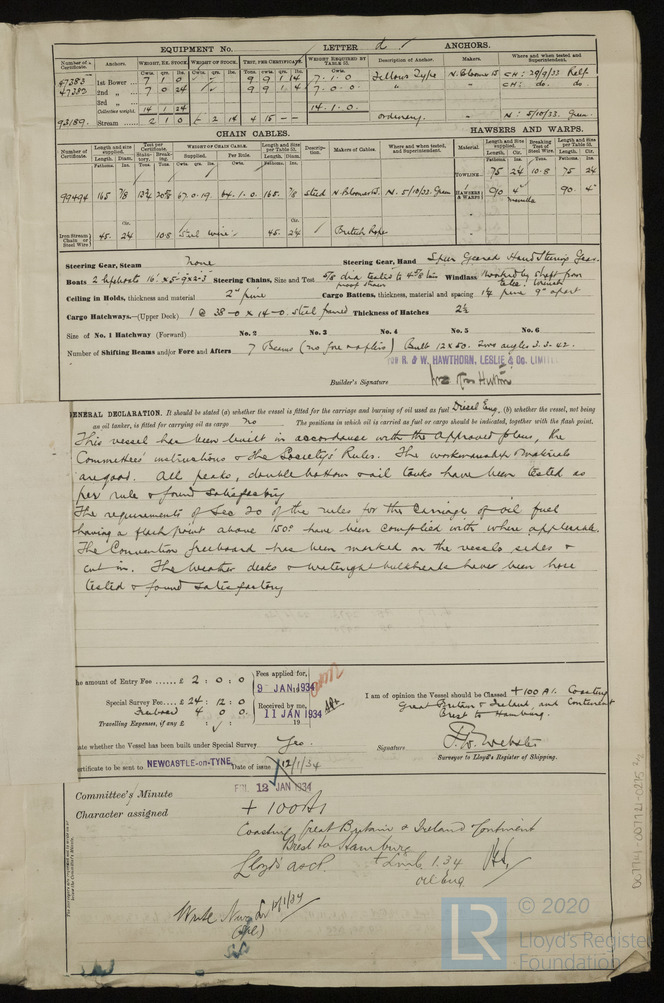 EQUIPMENT No. LETTER d ANCHORS.
Number of Certificate. Anchors. WEIGHT, EX. STOCK. WEIGHT OF STOCK. TEST, PER CERTIFICATE. WEIGHT REQUIRED BY TABLE 53. Description of Anchor. Makers. Where and when tested and Superintendent.
Cwts. qrs. lbs. Cwts. qrs. lbs. Tons. cwts. qrs. lbs. Cwts. qrs. lbs.
47383 1st Bower 7 1 0 9 9 1 14 7. 1. 0 CH: 29/9/33
47382 2nd „ 7 0 24 9 9 1. 4 7. 0. 0 „ „ CH: do. do.
3rd „
Collective weight. 14 1 24 14. 1. 0
93189. Stream 2 1 0 2 14 4 15 – – ordinary. „ N: 5/10/33. Green.
CHAIN CABLES. HAWSERS AND WARPS.
Number of Certificate. Length and size supplied. Test per Certificate. WEIGHT OF CHAIN CABLE. Length and size per Table 53. Description. Makers of Cables. Where and when tested, and Superintendent. Material. Length and size supplied. Breaking Test of Steel Wire. Length and size per Table 53.
Length. Diam. Statutory. Breaking. Supplied. Per Rule. Length. Diam. Length. Cir. Length. Cir.
TOWLINE 75 2¼ 10.8 75 2¼
99494 165 7/8 67. 0. 19. 64. 1. 0. 165. 7/8 stud N. Bloomer N. 5/10/33. Green HAWSERS & WARPS 90 4" 90. 4"
Manilla
Iron Stream Chain or Steel Wire 45. 2¼ 10.8 Steel wire 45. 2¼ British Rope
Steering Gear, Steam None Steering Gear, Hand Spur Geared Hand Steering Gear.
Boats 2 lifeboats 16' x 5-9 x 2-3 Steering Chains, Size and Test 5/8 dia tested to 4 5/8 tons proof strain Windlass Worked by shaft from
Ceiling in Holds, thickness and material 2" pine Cargo Battens, thickness, material and spacing 1¼ pine 9" apart
Cargo Hatchways.—(Upper Deck) 1 @ 38-0 x 14-0. steel framed Thickness of Hatches 2½
Size of No. 1 Hatchway (Forward) No. 2 No. 3 No. 4 No. 5 No. 6
Number of Shifting Beams and/or Fore and Afters 7 Beams Bulb 12 x 50. Two angles 3. 3. 42.
R. & W. HAWTHORN, LESLIE & Co. LIMITED
Builder's Signature
GENERAL DECLARATION. It should be stated (a) whether the vessel is fitted for the carriage and burning of oil used as fuel Diesel Eng, (b) whether the vessel, not being
an oil tanker, is fitted for carrying oil as cargo no The positions in which oil is carried as fuel or cargo should be indicated, together with the flash point.
This vessel has been built in accordance with the Approved plans, the
Committee's instructions & the Society's Rules. The workmanship & materials
are good. All peaks, double bottom & oil tanks have been tested as
per rule & found satisfactory
The requirements of Sec 20 of the rules for the Carriage of oil fuel
having a flash point above 150° have been complied with where applicable.
The Convention freeboard has been marked on the vessels sides &
cut in. The weather decks & watertight bulkheads have been hose
tested & found satisfactory
he amount of Entry Fee ...... £ 2 : 0 : 0 Fees applied for,
9 JAN 1934
Special Survey Fee.... £ 24 : 12 : 0
Freeboard 4 0 0 Received by me,
11 JAN 1934
Travelling Expenses, if any £ 19
I am of opinion the Vessel should be Classed +100 A1. Coasting
Great Britain & Ireland, and Continent
Brest to Hamburg.
ate whether the Vessel has been built under Special Survey Yes.
Signature F. W. Webster
Surveyor to Lloyd's Register of Shipping.
ertificate to be sent to NEWCASTLE-on-TYNE Date of issue 12/1/34
Committee's Minute FRI. 12 JAN 1934
Character assigned + 100 A1
Coasting Great Britain & Ireland & Continent
Brest to Hamburg
Lloyd's A & CP. + LMC 1.34
Oil Eng
Write 12/1/34
007741-007721-0275 2/2
LR
© 2020
Lloyd's Register
Foundation